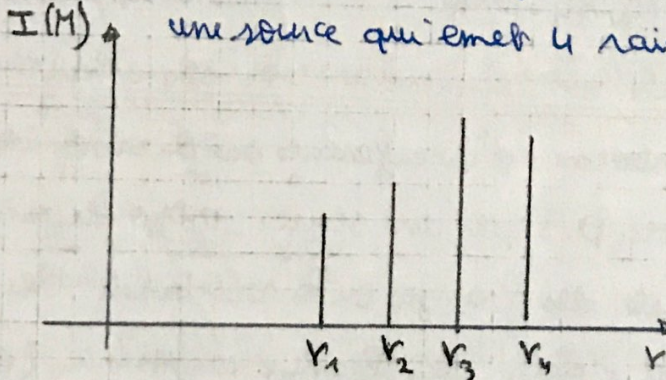 I(M) une source qui emet 4 rai
ν₁ ν₂ ν₃ ν₄ ν